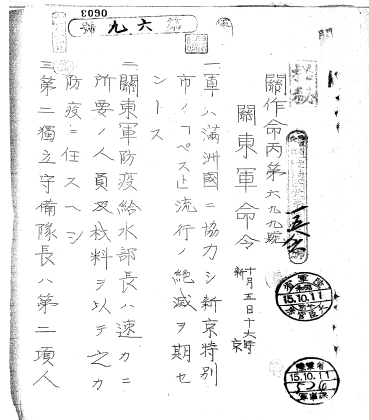 0603
第六九號
極秘
關作命丙第六九九號
關東軍命令
十月五日十六時
新京
一、軍ハ滿洲國ニ協力シ新京特別
市ノ「ペスト」流行ノ絶滅ヲ期セ
ントス
二、關東軍防疫給水部長ハ速カニ
所要ノ人員及材料ヲ以テ之カ
防疫ニ任スヘシ
三、第二獨立守備隊長ハ第二項人
15.10.11
陸軍省
15.10.11
軍事課